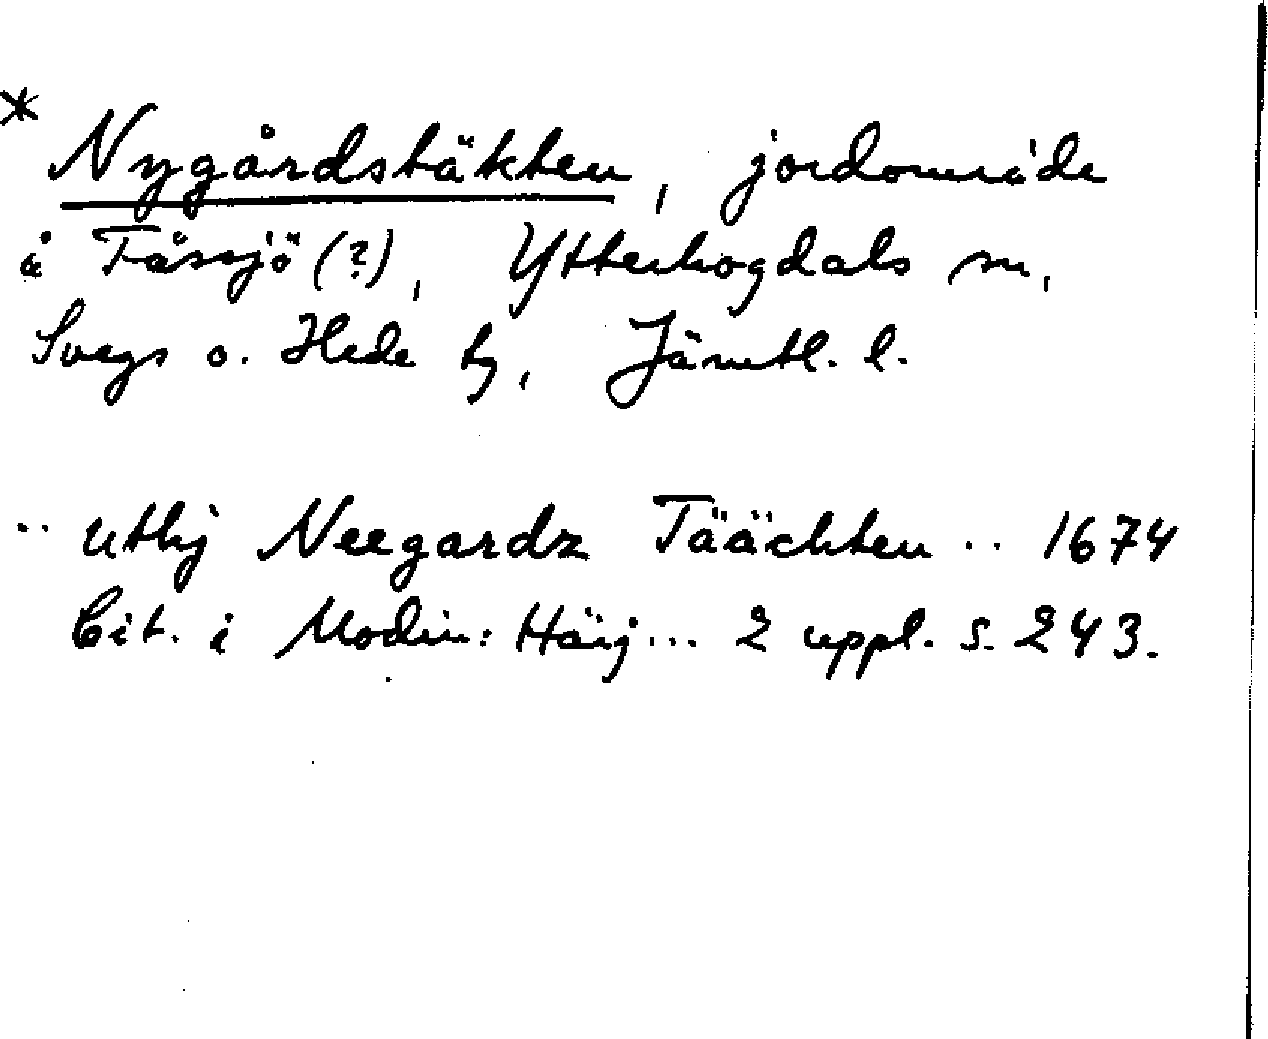 * Nygårdstäkten, jordområde
å Fåssjö (?), Ytterhogdals sn,
Svegs o. Hede tg, Jämtl. l.
.. uthij Neegardz Täächten .. 1674
Cit. i Modin: Härj... 2 uppl. s. 243.